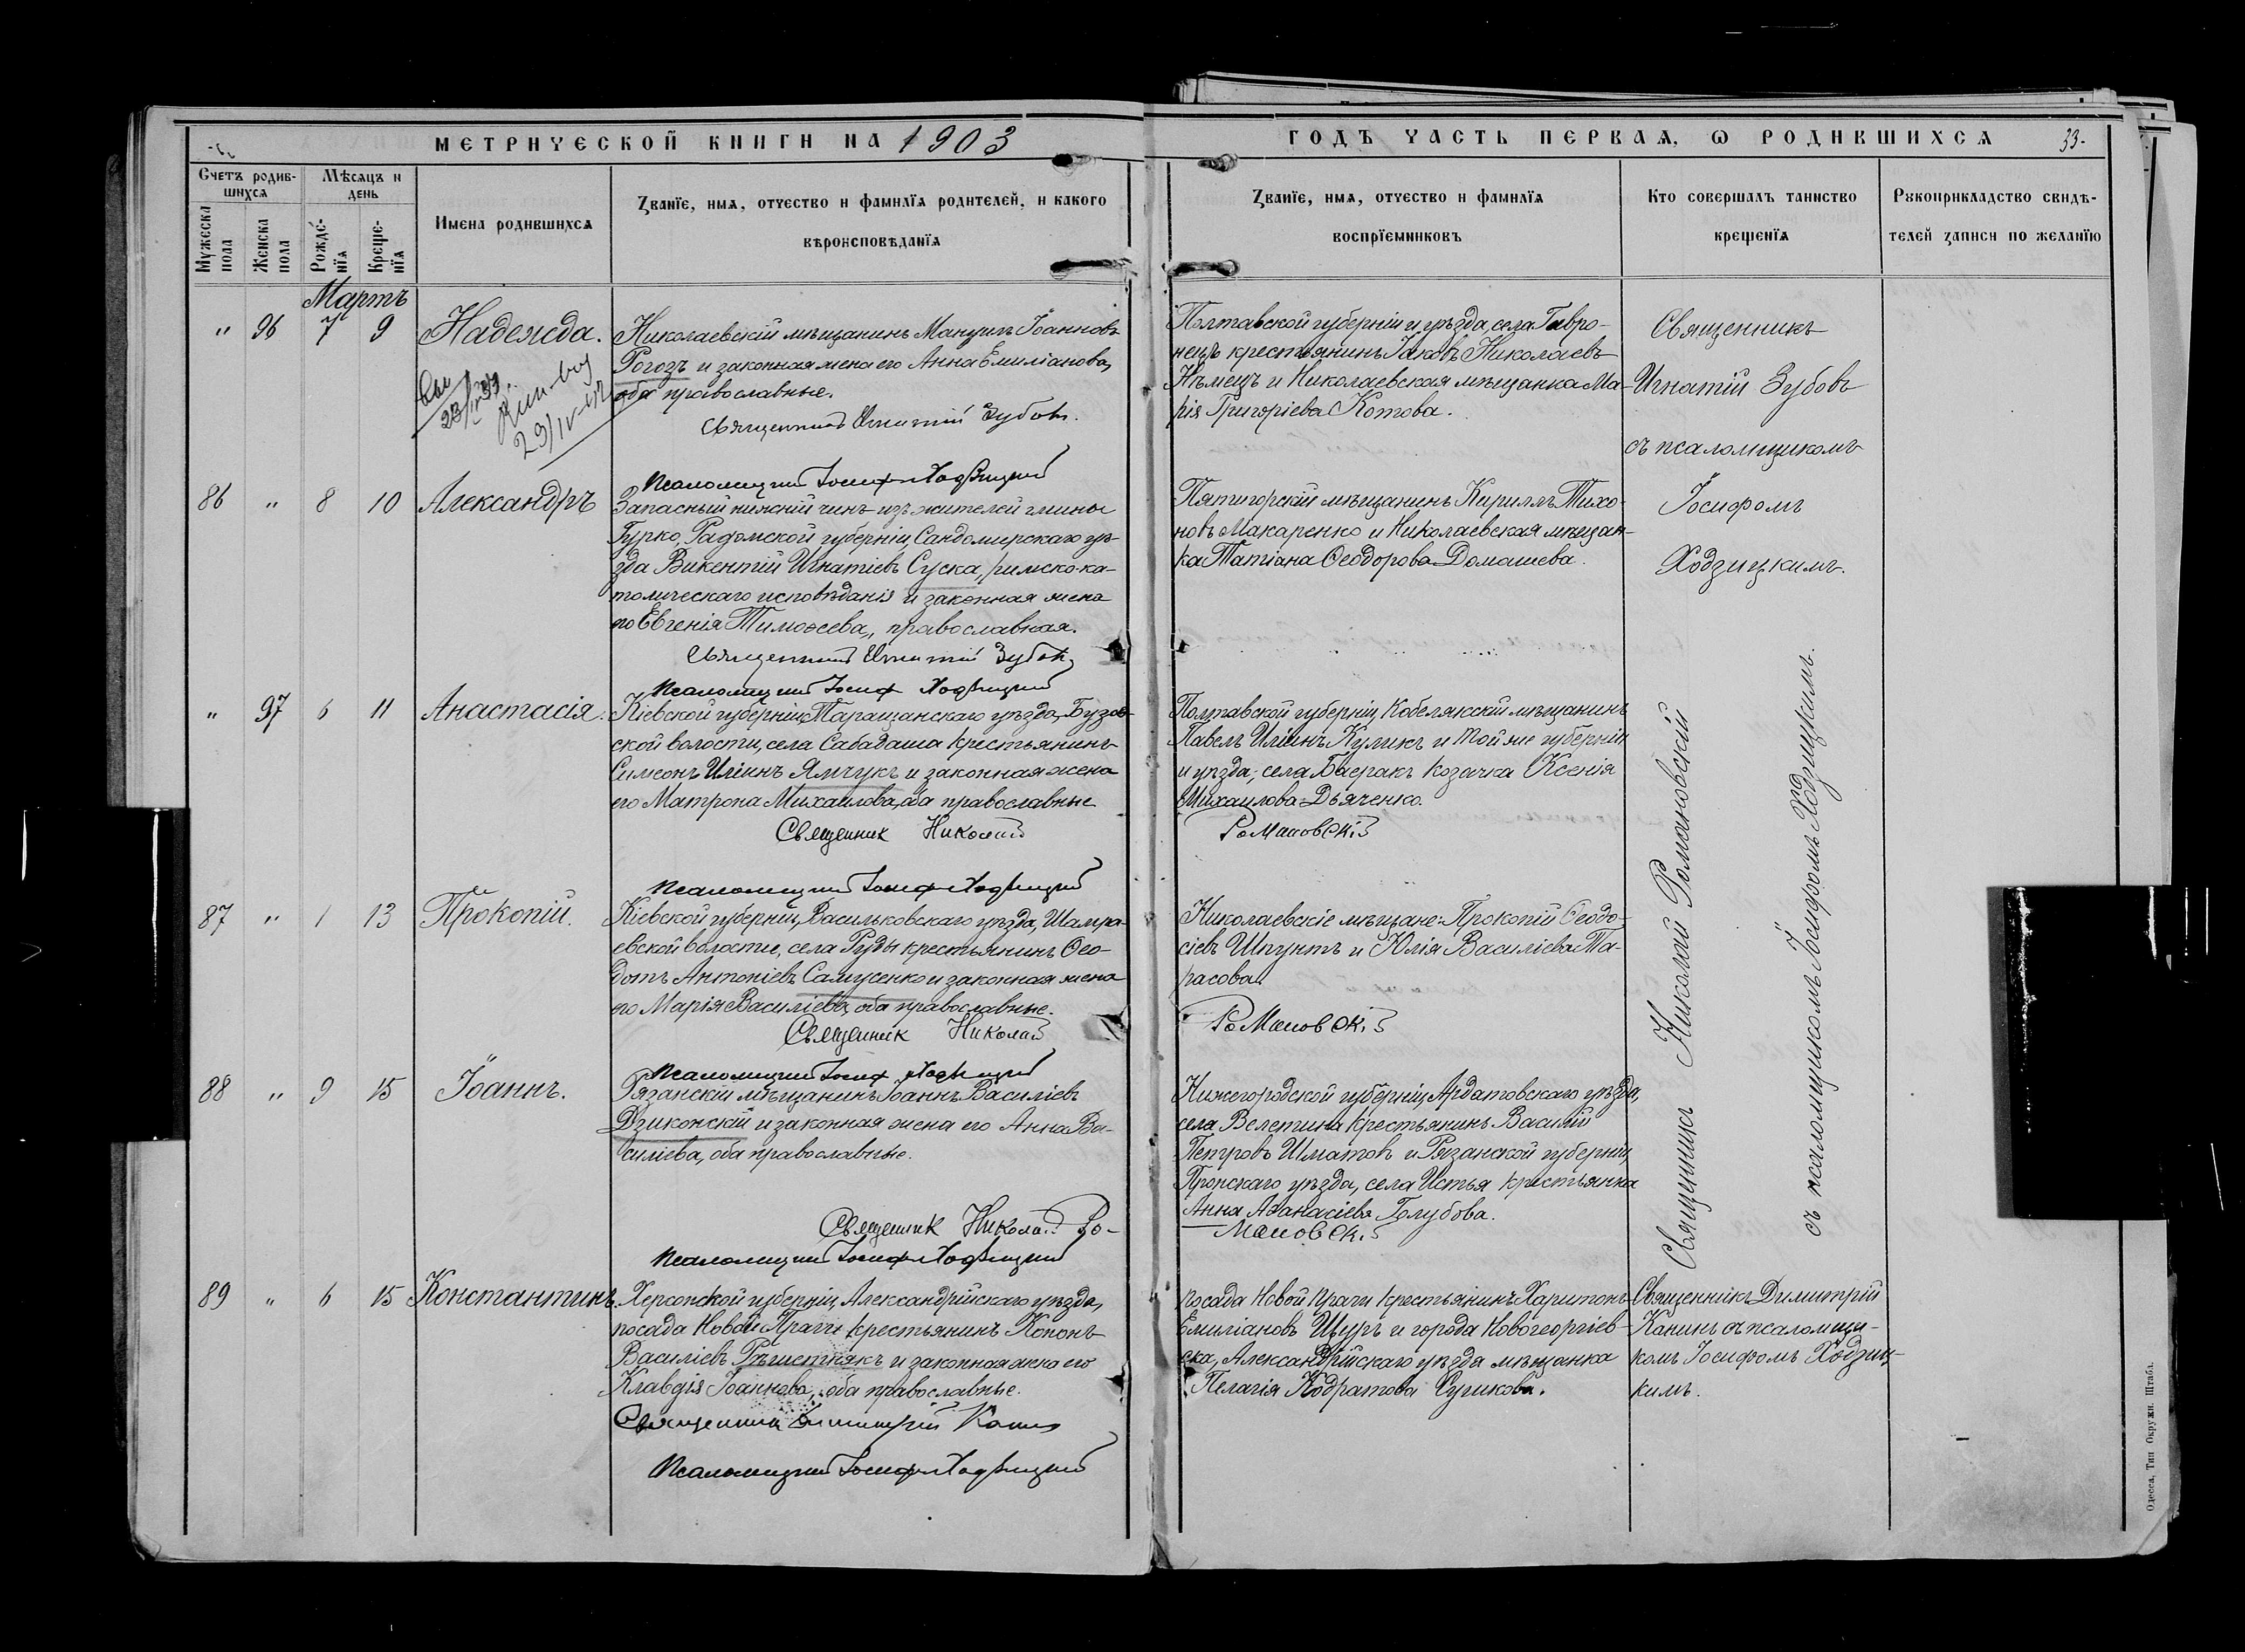 МЕТРИЧЕСКОЙ КНИГИ НА 1903
ГОДЪ ЧАСТЬ ПЕРВАЯ, Ѡ РОДИВШИХСЯ 33.
Счетъ родив-
шихся
Мужеска
пола
Женска
пола
Мѣсяцъ и
день
Рожде-
нїя
Креще-
нїя
Имена родившихся
Званїе, имя, отчество и фамилїя родителей, и какого
вѣроисповѣданїя
Званїе, имя, отчество и фамилїя
воспрїемниковъ
Кто совершалъ таинство
крещенїя
Рукоприкладство свидѣ-
телей записи по желанїю
Мартъ
" 96 7 9 Надежда.
Николаевскій мѣщанинъ Іоанновъ
Рогозъ и законная жена его Анна Емиліанова,
оба православные.
Священникъ Игнатій Зубовъ.
Псаломщикъ Іосифъ Ходзицкій
Полтавской губерніи и уѣзда, села Гавро-
нецъ крестьянинъ Іаковъ Николаевъ
Нѣмецъ и Николаевская мѣщанка Ма-
рія Григоріева Котова.
Священникъ
Игнатій Зубовъ
съ псаломщикомъ
Іосифомъ
Ходзицкимъ.
23/IV
86 " 8 10 Александръ
Запасный нижній чинъ изъ жителей гмины
Гурко, Радомской губерніи Сандомирскаго уѣ-
зда Викентій Игнатіевъ Суска, римско-ка-
толическаго исповѣданія и законная жена
его Евгенія Тимоѳеева, православная.
Священникъ Игнатій Зубовъ
Псаломщикъ Іосифъ Ходзицкій
Пятигорскій мѣщанинъ Кириллъ Тихо-
новъ Макаренко и Николаевская мѣщан-
ка Татіана Ѳеодорова Домашева.
" 97 6 11 Анастасія.
Кіевской губерніи, Таращанскаго уѣзда, Бузов-
ской волости, села Сабадаша крестьянинъ
Симеонъ Иліинъ Ямчукъ и законная жена
его Матрона Михаилова, оба православные
Священник Николай
Псаломщикъ Іосифъ Ходзицкій
Полтавской губерніи, Кобелякскій мѣщанинъ
Павелъ Иліинъ Куликъ и той же губерніи
и уѣзда, села Баеракъ козачка Ксенія
Михаилова Дьяченко.
Романовскій
Священникъ Николай Романовскій
съ псаломщикомъ Іосифомъ Ходзицкимъ.
87 " 1 13 Прокопій.
Кіевской губерніи, Васильковскаго уѣзда, Шамра-
евской волости, села Руды крестьянинъ Ѳео-
дотъ Антоніевъ Самусенко и законная жена
его Марія Василіева, оба православные.
Священник Николай
Псаломщикъ Іосифъ Ходзицкій
Николаевскіе мѣщане: Прокопій Ѳеодо-
сіевъ Шпунтъ и Юлія Василіева Та-
расова.
Романовскій
88 " 9 15 Іоаннъ.
Рязанскій мѣщанинъ Іоаннъ Василіевъ
Дзиконскій и законная жена его Анна Ва-
силіева, оба православные.
Священник Николай Ро-
Псаломщикъ Іосифъ Ходзицкій
Нижегородской губерніи, Ардатовскаго уѣзда,
села Велетина крестьянинъ Василій
Петровъ Шматовъ и Рязанской губерніи,
Пронскаго уѣзда, села Истья крестьянка
Анна Аѳанасіева Голубова.
мановскій
89 " 6 15 Константинъ.
Херсонской губерніи, Александрійскаго уѣзда,
посада Новой Праги крестьянинъ Кононъ
Василіевъ Рѣшетнякъ и законная жена его
Клавдія Іоаннова, оба православные.
Священникъ Димитрій Канинъ
Псаломщикъ Іосифъ Ходзицкій
посада Новой Праги крестьянинъ Харитонъ
Емиліановъ Щуръ и города Новогеоргіев-
ска, Александрійскаго уѣзда мѣщанка
Пелагія Кодратова Сушкова.
Священникъ Димитрій
Канинъ съ псаломщи-
комъ Іосифомъ Ходзиц-
кимъ.
Одесса, Тип. Окружн. Штаба.